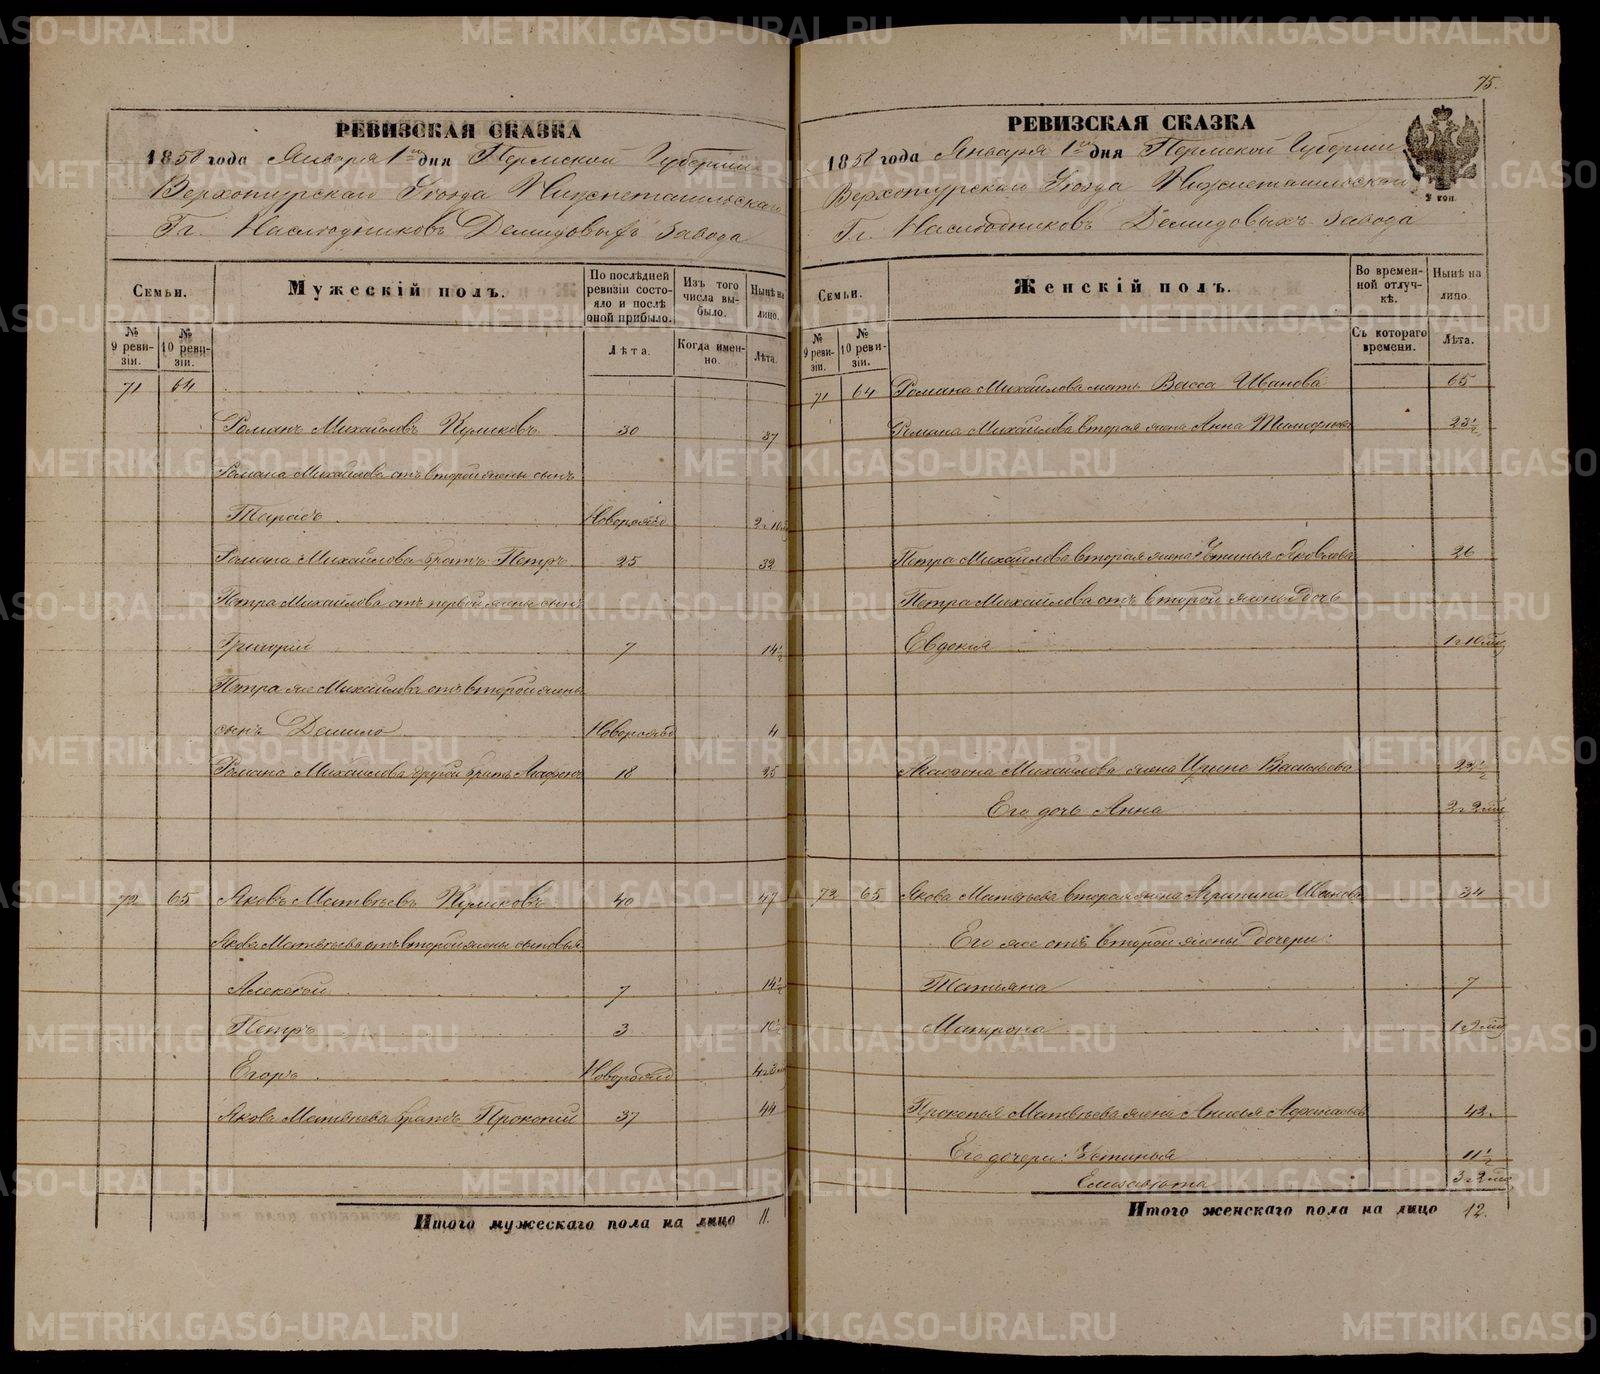 75.
РЕВИЗСКАЯ СКАЗКА
1858 года Января 1го дня Пермской Губернии
Верхотурскаго Уѣзда Нижнетагильскаго
Гг. Наслѣдниковъ Демидовыхъ завода
Семьи.
Мужескій полъ.
По послѣдней ревизіи состояло и послѣ оной прибыло.
Изъ того числа выбыло.
Нынѣ на лицо.
№ 9 ревизіи.
№ 10 ревизіи.
Лѣта.
Когда именно.
Лѣта.
71 64
Романъ Михайловъ Куликовъ 30 37
Романа Михайлова отъ второй жены сынъ
Тарасъ Новорожд
Романа Михайлова братъ Петръ 25 32
Петра Михайлова отъ первой жены сынъ
Григорій 7 14½
Петра же Михайлова отъ второй жены
сынъ Данило Новорожд 4
Романа Михайлова другой братъ Агафонъ 18 25
72 65 Яковъ Матвѣевъ Куликовъ 40 47
Якова Матвѣева отъ второй жены сыновья
Алексѣй 7 14½
Петръ 3 10½
Егоръ Новорожд
Якова Матвѣева братъ Прокопій 37 44
Итого мужескаго пола на лицо 11.
РЕВИЗСКАЯ СКАЗКА
1858 года Января 1го дня Пермской Губерніи
Верхотурскаго Уѣзда Нижнетагильскаго
Гг. Наслѣдниковъ Демидовыхъ завода
2 коп.
Семьи.
Женскій полъ.
Во временной отлучкѣ.
Нынѣ на лицо.
№ 9 ревизіи.
№ 10 ревизіи.
Съ котораго времени.
Лѣта.
71 64 Романа Михайлова мать Васса Иванова 65
Романа Михайлова вторая жена Анна 23½
Петра Михайлова вторая жена Устинья Яковлева 26
Петра Михайлова отъ второй жены дочь
Евдокія
Агафона Михайлова жена Ирина Васильева
Его дочь Анна
72 65 Якова Матвѣева вторая жена Иванова 34
Его же отъ второй жены дочери:
Татьяна 7
Матрона
Прокопья Матвѣева жена 43.
Его дочери: Устинья 11½
Елизавета
Итого женскаго пола на лицо 12.
METRIKI.GASO-URAL.RU